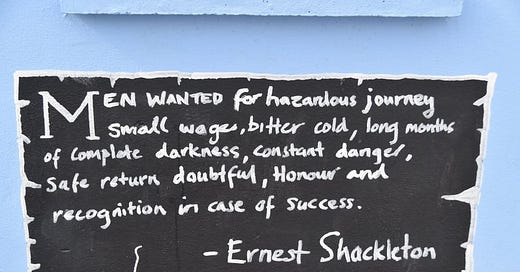 MEN WANTED for hazardous journey
Small wages, bitter cold, long months
of complete darkness, constant danger,
Safe return doubtful, Honour and
recognition in case of success.
- Ernest Shackleton